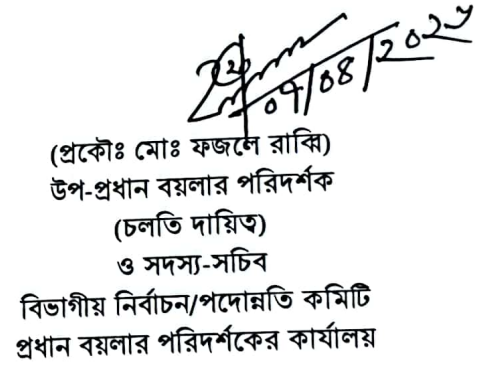 ০৭/০৪/২০২৫
(প্রকৌঃ মোঃ ফজলে রাব্বি)
উপ-প্রধান বয়লার পরিদর্শক
(চলতি দায়িত্ব)
ও সদস্য-সচিব
বিভাগীয় নির্বাচন/পদোন্নতি কমিটি
প্রধান বয়লার পরিদর্শকের কার্যালয়